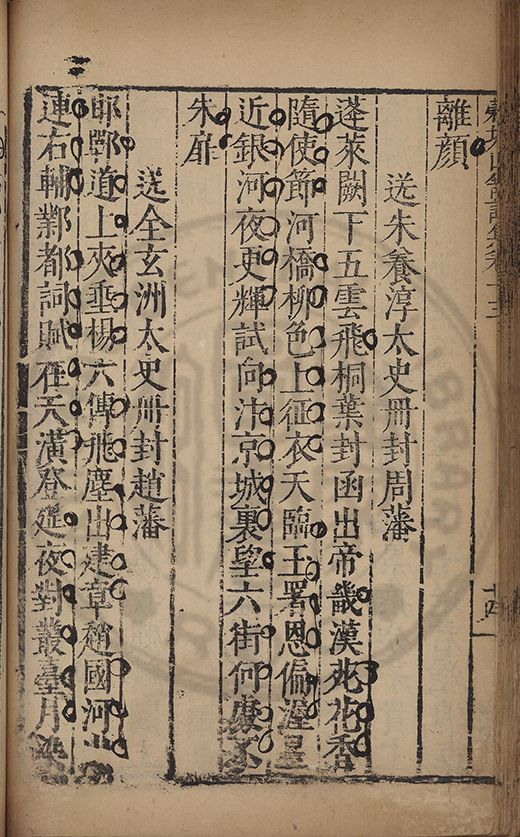 離顏
送朱養淳太史冊封周藩
蓬萊闕下五雲飛桐葉封函出帝畿漢苑花香
隨使節河橋柳色上征衣天臨王署恩偏渥星
近銀河夜更輝試向汴京城裏望六街何處不
朱扉
送全玄洲太史冊封趙藩
邯鄲道上夾垂楊六傳飛塵出建章趙國河山
連右輔鄴都詞賦在天潢登筵夜對叢臺月染
十四